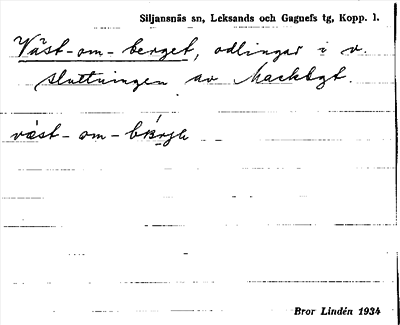 Siljansnäs sn, Leksands och Gagnefs tg, Kopp. l.
Väst-om-berget, odlingar i v.
sluttningen av
väst-om-
Bror Lindén 1934